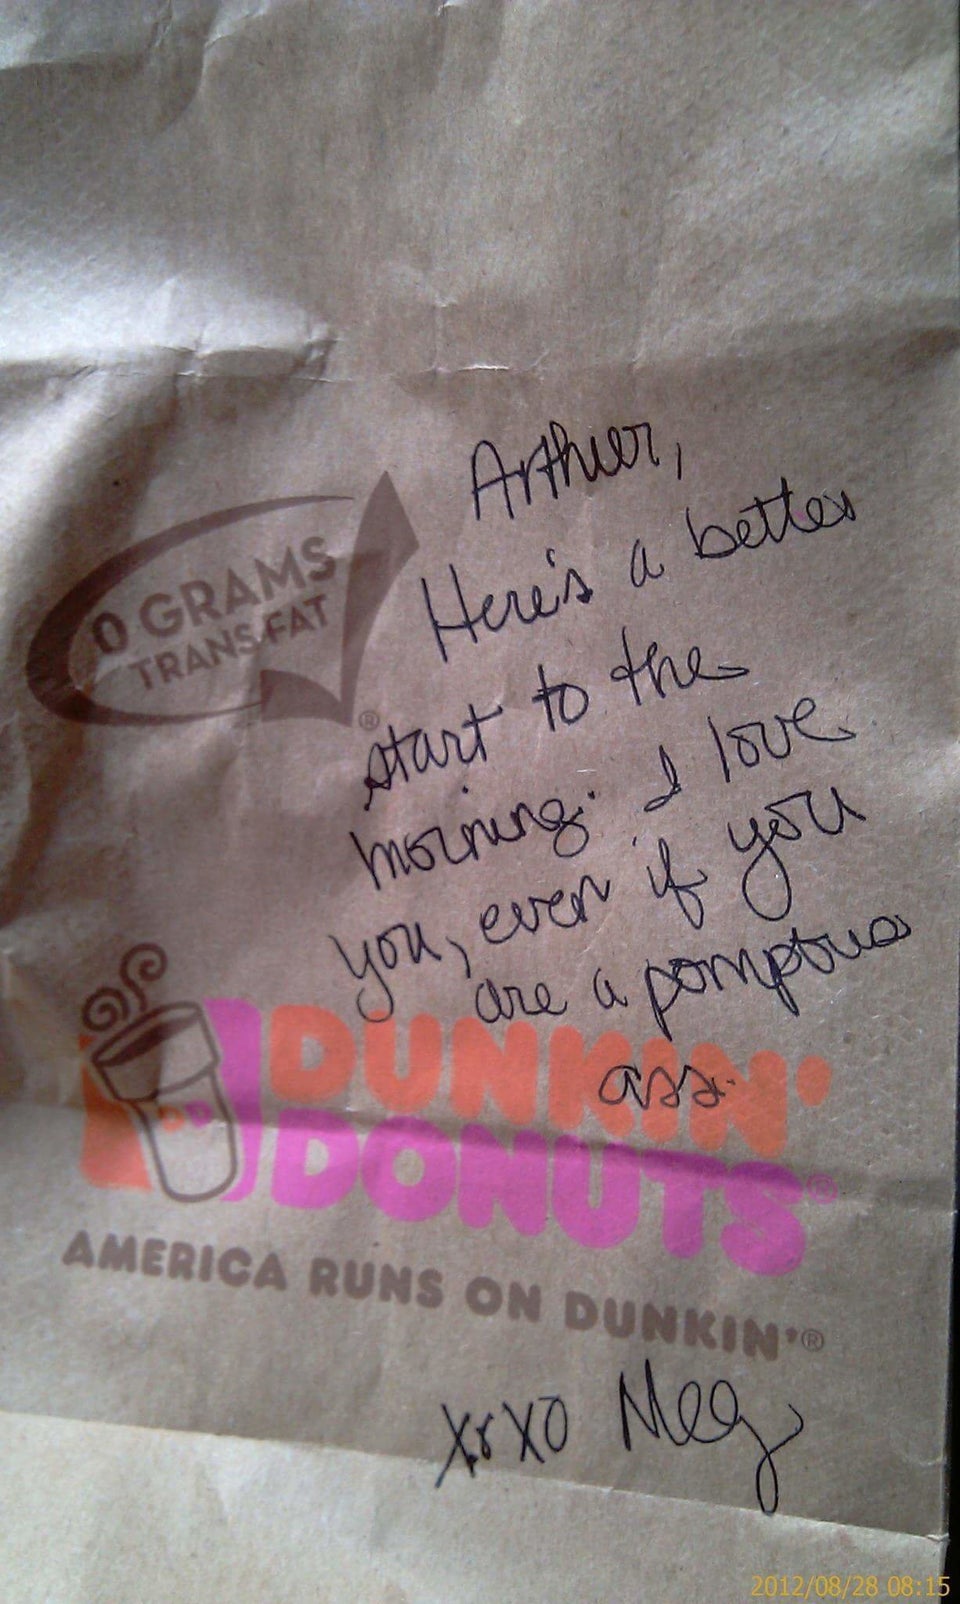 Arthur,
Here's a better
start to the
morning. I love
you, even if you
are a pomptous
ass.
0 GRAMS
TRANS FAT
®
DUNKIN'
DONUTS®
DD
AMERICA RUNS ON DUNKIN'®
XoXO Meg
2012/08/28 08:15